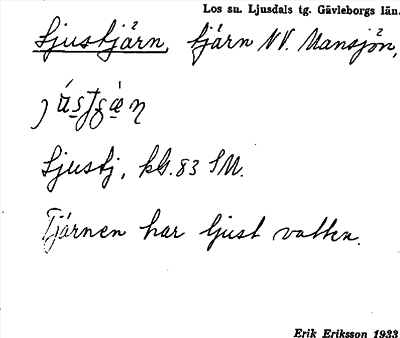 Los sn. Ljusdals tg. Gävleborgs län.
Ljustjärn, tjärn NV. Mansjön,
Ljustj, kbl. 83 SM.
Tjärnen har ljust vatten.
Erik Eriksson 1933